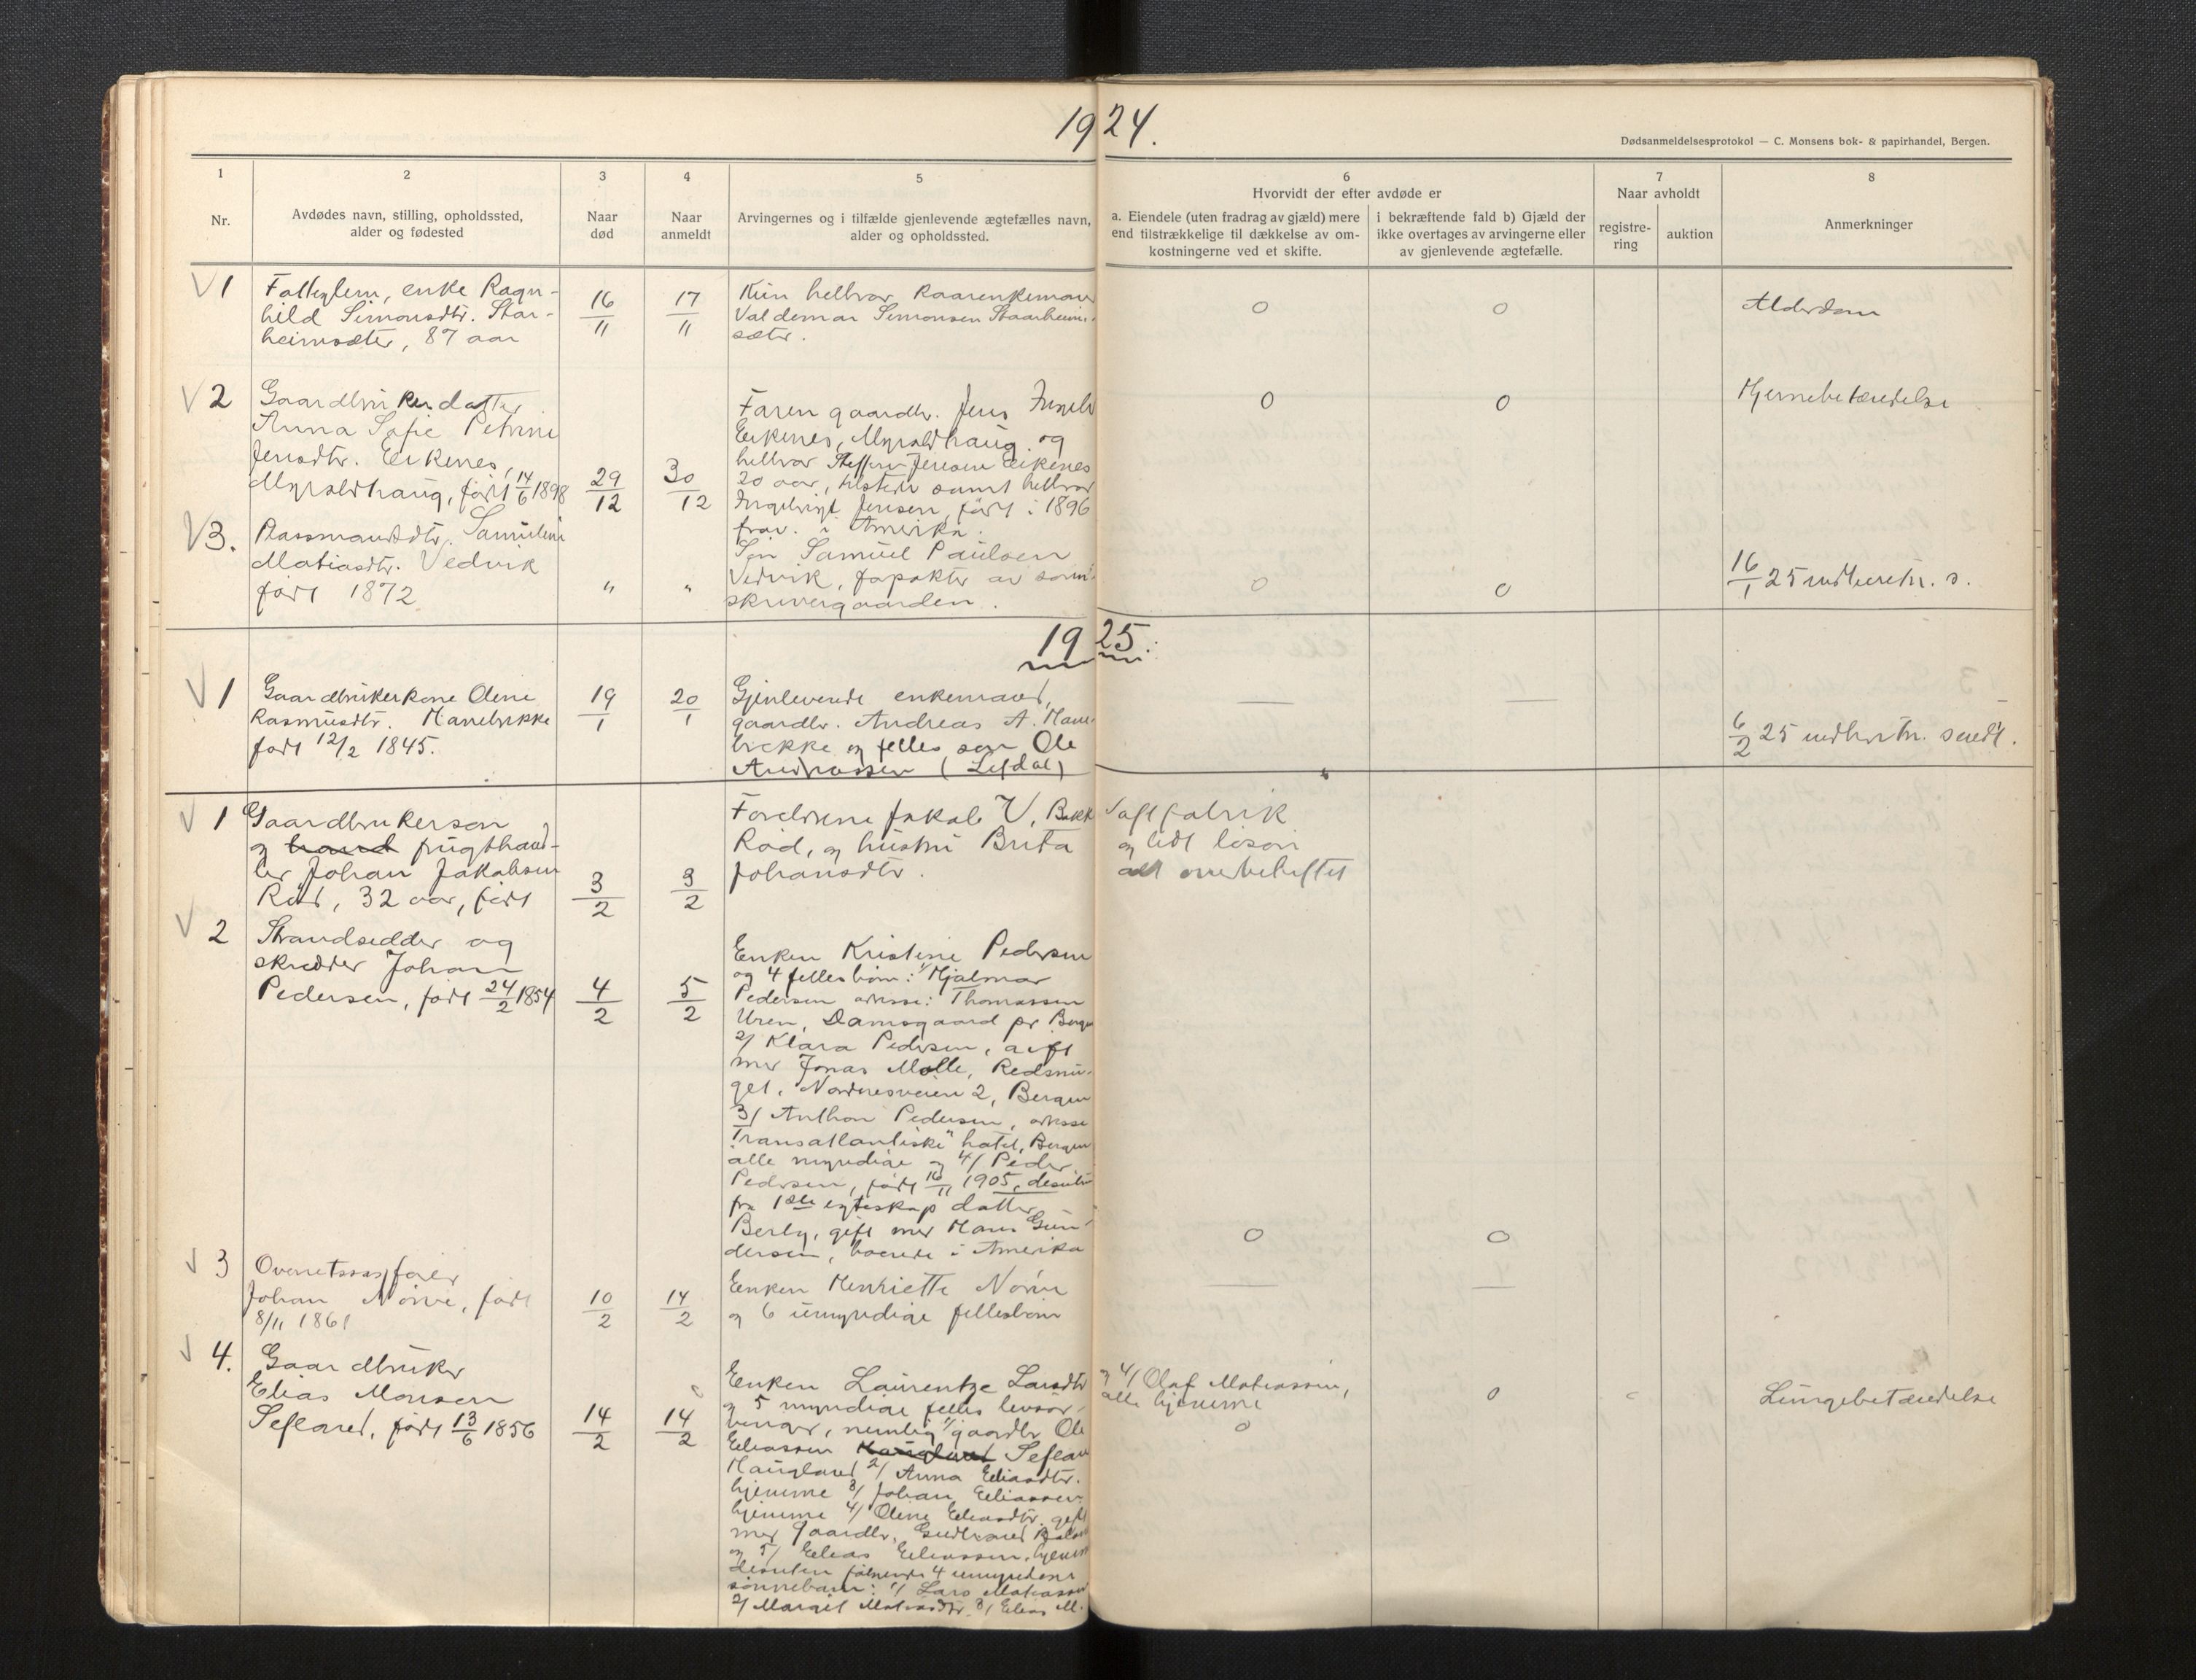 1924.
Dødsanmeldelsesprotokol — C. Monsens bok- & papirhandel, Bergen.
1
Nr.
2
Avdødes navn, stilling, opholdssted,
alder og fødested
3
Naar
død
4
Naar
anmeldt
5
Arvingernes og i tilfælde gjenlevende ægtefælles navn,
alder og opholdssted.
6
Hvorvidt der efter avdøde er
a. Eiendele (uten fradrag av gjæld) mere
end tilstrækkelige til dækkelse av om-
kostningerne ved et skifte.
i bekræftende fald b) Gjæld der
ikke overtages av arvingerne eller
av gjenlevende ægtefælle.
7
Naar avholdt
registre-
ring
auktion
8
Anmerkninger
1
enke Ragn-
hild Simonsdtr. Star-
heimsæter, 87 aar
16/11
17/11
Kun helbror
Valdemar Simonsen Staarheim-
sæter.
0
0
Alderdom
2
Gaardbrukerdatter
Anna Sofie Petrine
Jensdtr. Eikenes,
født 14/6 1898
29/12
30/12
Faren gaardbr. Jens
Eikenes, og
helbror Steffen Jensen Eikenes
20 aar, samt helbror
Ingebrigt Jensen, født i 1896
frav. i Amerika.
0
0
Hjernebetændelse
3.
Matiasdtr. Vedvik
født 1872
"
"
Søn Samuel Paulsen
Vedvik, av soren-
skrivergaarden.
0
0
16/1 25 s.
1925.
1
Gaardbrukerkone Oline
Rasmusdtr. Hanebrekke
født 12/2 1845.
19/1
20/1
Gjenlevende enkemand,
gaardbr. Andreas A. Hane-
brekke og felles søn Ole
Andreassen (Lefdal)
—
—
6/2 25 sendt.
1
Gaardbrukersøn
og hand frugthand-
ler Johan Jakobsen
Rød, 32 aar, født
3/2
3/2
Forældrene Jakob V.
Rød, og hustru Brita
Johansdtr.
Saftfabrik
og lidt løsøre
alt overbeheftet
2
Strandsidder og
skredder Johan
Pedersen, født 24/2 1854
4/2
5/2
Enken Kristine Pedersen
og 4 fellesbørn: 1/ Hjalmar
Pedersen adresse: Thomassen
Uren, Damsgaard pr Bergen
2/ Klara Pedersen, gift
med Jonas Molle,
Nordnesveien 2, Bergen
3/ Anthon Pedersen, adresse
"Transatlantiske" hotel, Bergen
alle myndige og 4/ Peder
Pedersen, født 16/11 1905, desuten
fra 1ste egteskap datter
gift med Hans Gun-
dersen, boende i Amerika
0
0
3
Overretssagfører
Johan Nørve, født
8/11 1861
10/2
14/2
Enken Henriette Nørve
og 6 umyndige fellesbørn
—
—
4.
Gaardbruker
Elias Monsen
Sefland, født 13/6 1856
14/2
14/2
Enken Laurentze Larsdtr
og 5 myndige felles livsar-
vinger, nemlig 1/ gaardbr Ole
Eliassen Haugland Sefland
Haugland 2/ Anna Eliasdtr.
hjemme 3/ Johan Eliassen
hjemme 4/ Oline Eliasdtr. gift
med gaardbr. Gudbrand
og 5/ Elias Eliassen, hjemme
desuten følgende 4 umyndige
sønnebarn: 1/ Lars Matiassen
2/ Margit Matiasdtr. 3/ Elias M.
og 4/ Olaf Matiassen,
alle hjemme
0
0
Lungebetændelse